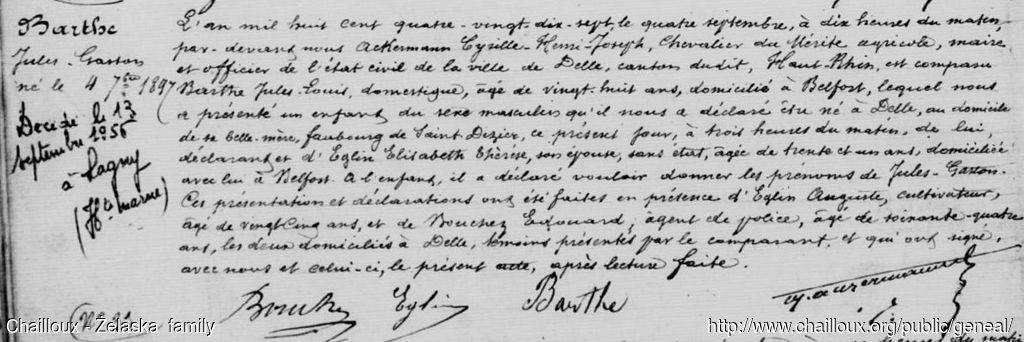 Barthe
Jules-Gaston
né le 4 7bre 1897
Décédé le 13
septembre 1956
à Lagny
(Hte marne)
L'an mil huit cent quatre-vingt-dix-sept le quatre septembre, à dix heures du matin,
par-devant nous Ackermann Cysille-Henri-Joseph, Chevalier du Mérite agricole, maire
et officier de l'état civil de la ville de Delle, canton dudit, Haut-Rhin, est comparu
Barthe Jules-Louis, domestique, âgé de vingt-huit ans, domicilié à Belfort, lequel nous
a présenté un enfant du sexe masculin qu'il nous a déclaré être né à Delle, au domicile
de sa belle-mère, faubourg de Saint-Dizier, ce présent jour, à trois heures du matin, de lui,
déclarant et d'Eglin Elisabeth Thérèse, son épouse, sans état, âgée de trente et un ans, domiciliée
avec lui à Belfort. A l'enfant, il a déclaré vouloir donner les prénoms de Jules-Gaston.
Ces présentation et déclarations ont été faites en présence d'Eglin Auguste, cultivateur,
âgé de vingt cinq ans, et de Bouchez Edouard, agent de police, âgé de soixante-quatre
ans, les deux domiciliés à Delle, témoins présentés par le comparant et qui ont signé,
avec nous et celui-ci, le présent acte, après lecture faite.
Bouchez Eglin Barthe
Chailloux - Zelaska family
http://www.chailloux.org/public/geneal/